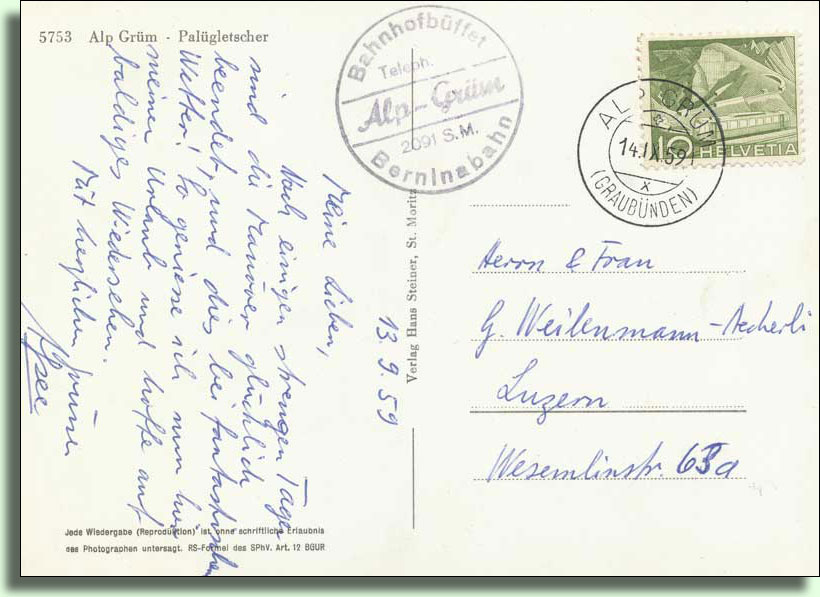 5753 Alp Grüm - Palügletscher
Bahnhofbüffet
Teleph.
Alp-Grüm
2091 S.M.
Berninabahn
15 HELVETIA
ALP GRÜM
14.IX.59
X
(GRAUBÜNDEN)
13.9.59
Meine Lieben,
Nach einigen strengen Tagen
sind die Manöver glücklich
beendet, und dies bei fantastischem
Wetter! So geniesse ich nun hier
meinen Urlaub und hoffe auf
baldiges Wiedersehen.
Mit herzlichen Grüssen
Verlag Hans Steiner, St. Moritz
Herrn & Frau
G. Weilenmann-Aecherli
Luzern
Wesemlinstr. 63a
Jede Wiedergabe (Reproduktion) ist ohne schriftliche Erlaubnis
des Photographen untersagt. RS-Formel des SPhV. Art. 12 BGUR